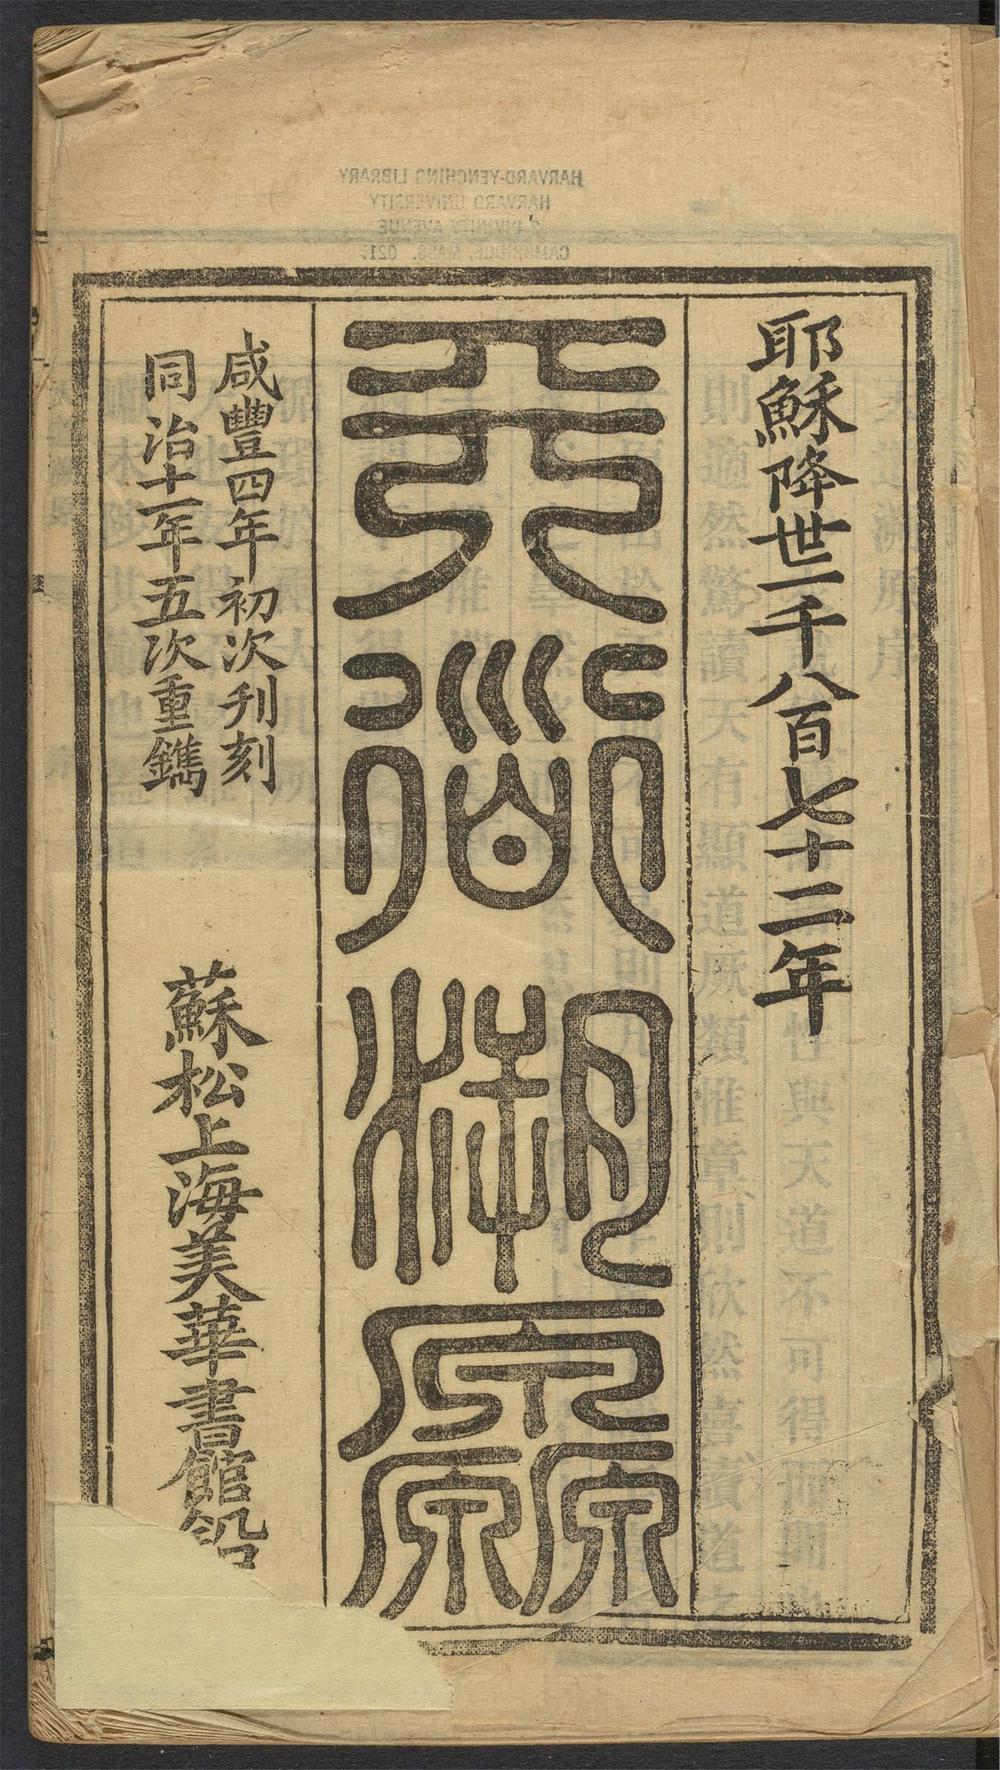 耶穌降世一千八百七十二年
天道溯原
咸豐四年初次刋刻
同治十一年五次重鐫
蘇松上海美華書館鉛
HARVARD-YENCHING LIBRARY
HARVARD UNIVERSITY
2 DIVINITY AVENUE
CAMBRIDGE, MASS. 021